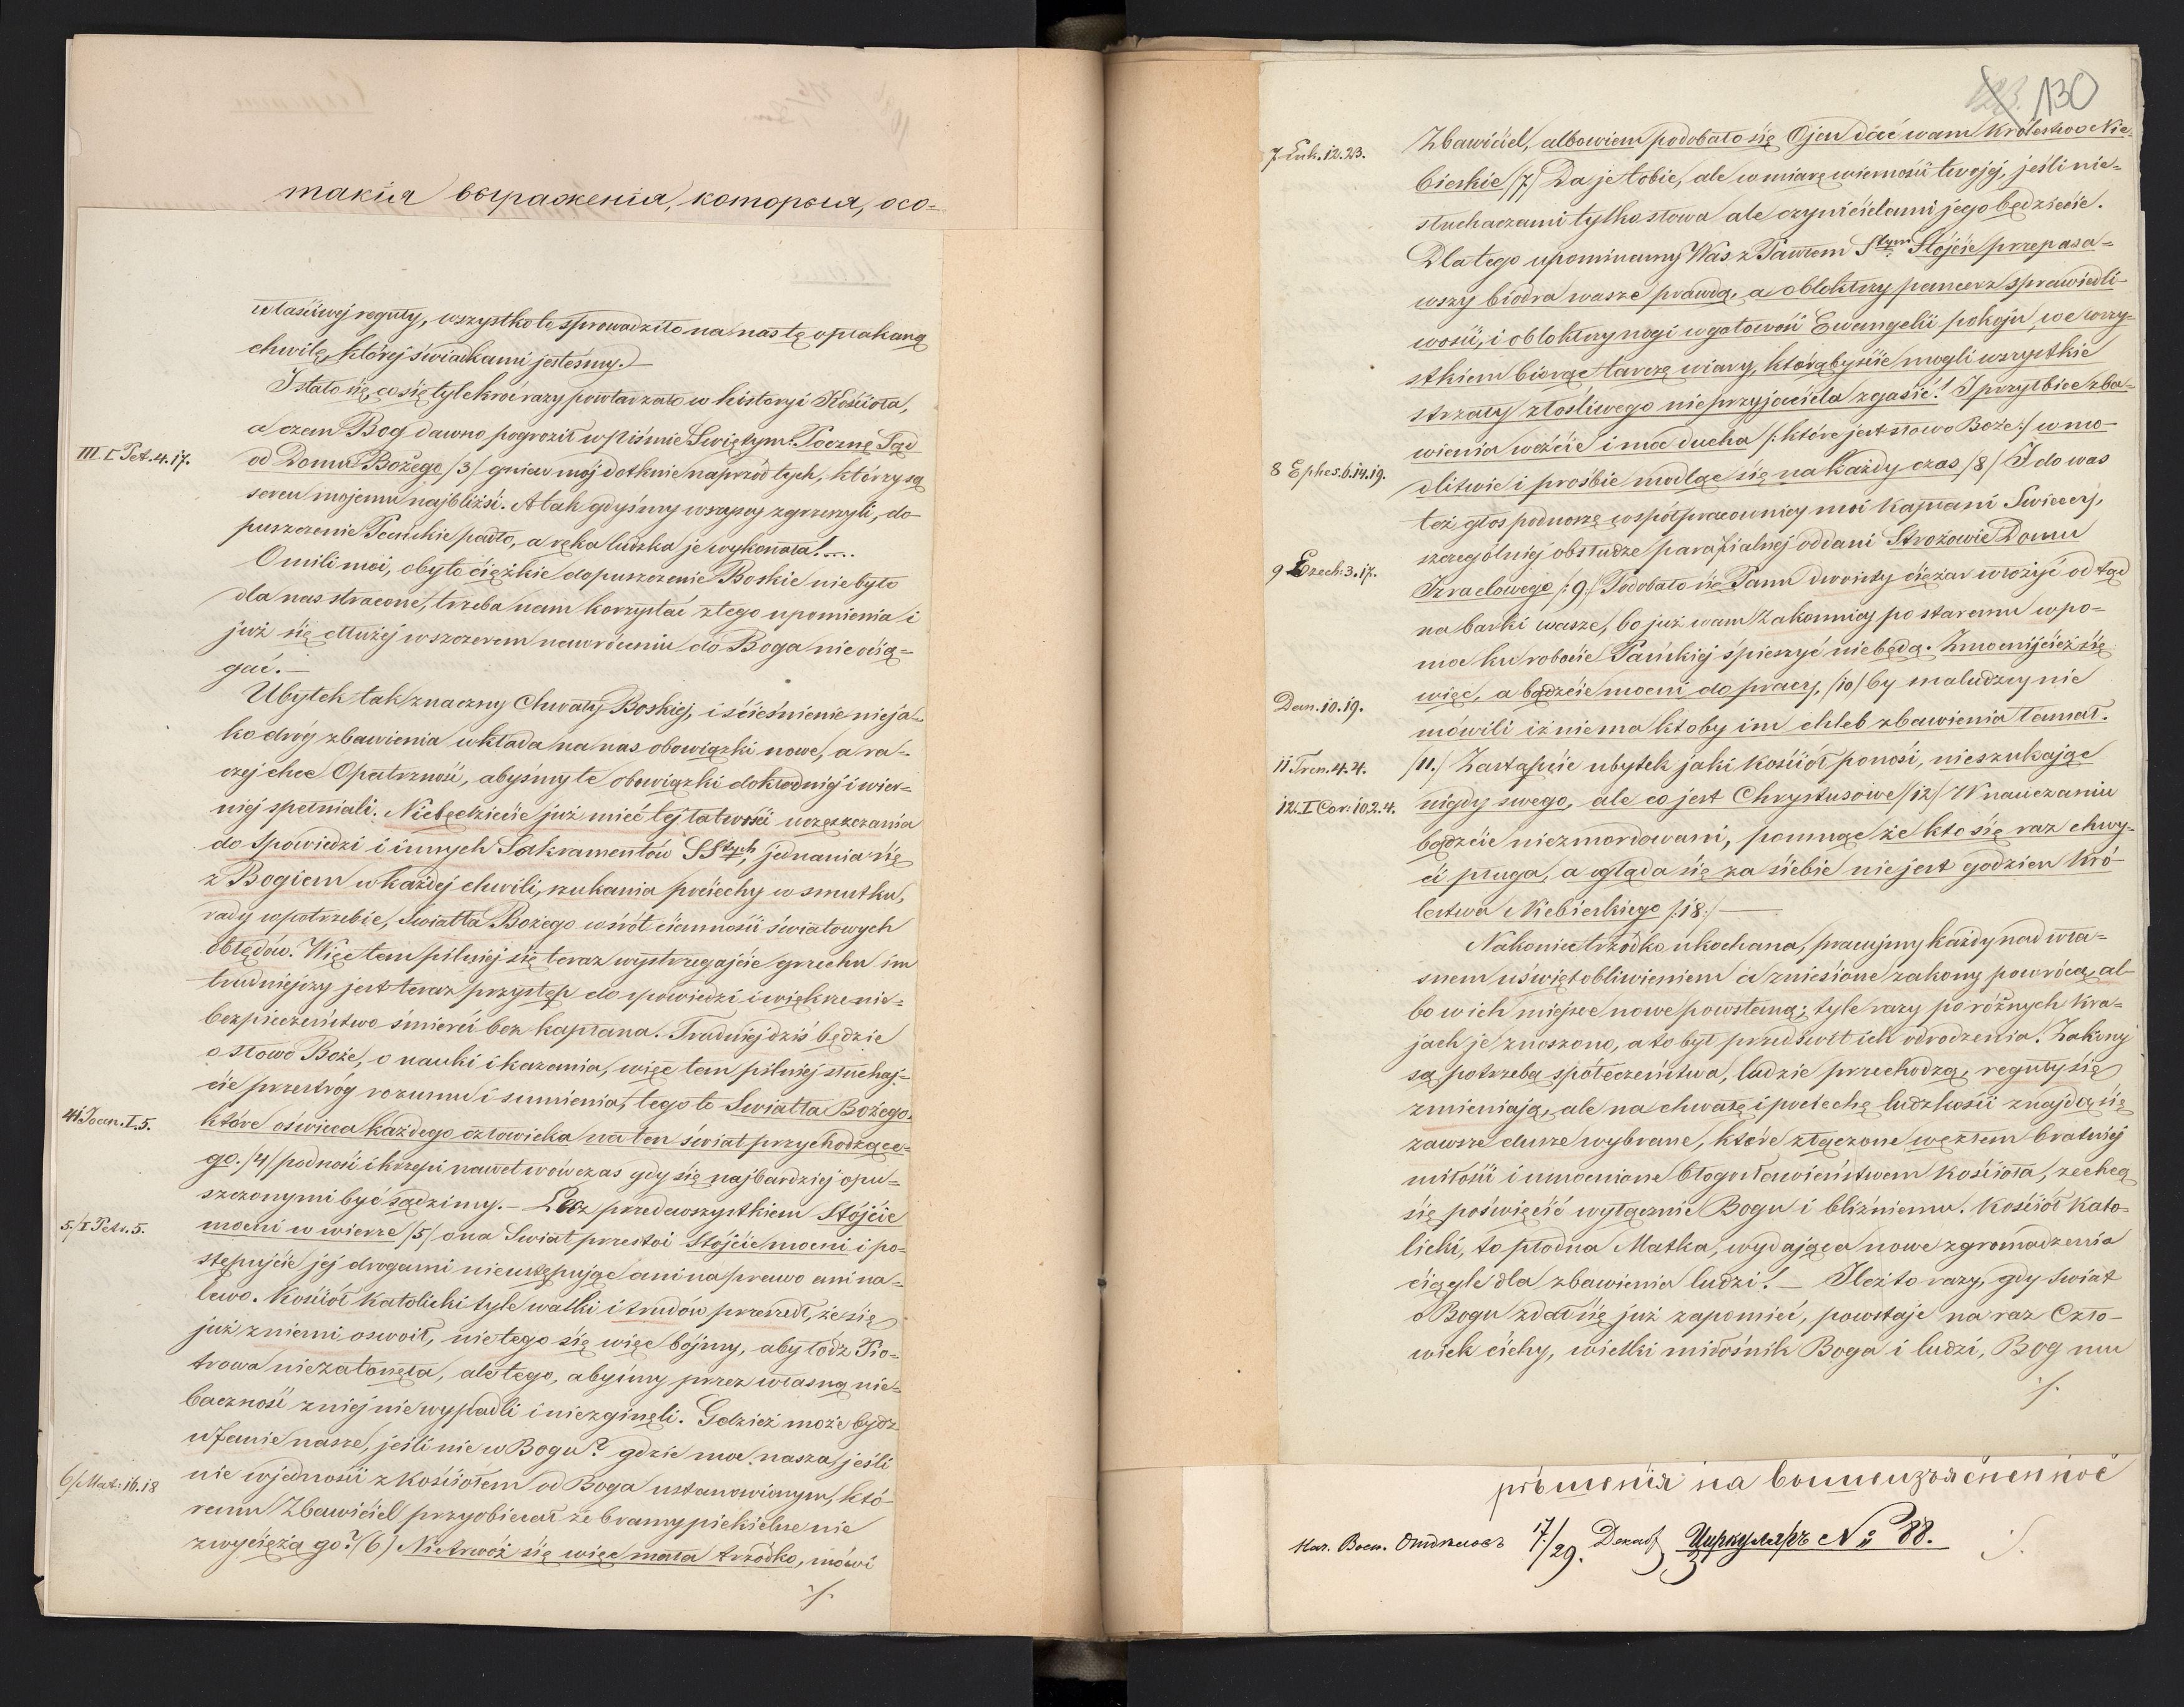 такія выраженія, которыя, осо-
własciwej reguły, wszystko to sprowadziło na nas tę opłakaną
chwilę, której świadkami jesteśmy.—
I stało się, co się tylekróć razy powtarzało w historyi Kościoła,
a czem Bog dawno pogroził w Piśmie Swiętym: Pocznę Sąd
III I Pet. 4. 17.
od Domu Bożego /3/ gniew mój dotknie naprzód tych, którzy są
sercu mojemu najbliźsi. A tak gdyśmy wszyscy zgrzeszyli, do-
puszczenie Pańskie padło, a ręka ludzka je wykonała!....
O mili moi, oby to ciężkie dopuszczenie Boskie nie było
dla nas stracone, trzeba nam korzystać z tego upomienia i
już się dłużéj w szczerem nawróceniu do Boga nie ocią-
gać.—
Ubytek tak znaczny Chwały Boskiej, i ścieśnienie nieja-
ko dróg zbawienia wkłada na nas obowiązki nowe, a ra-
czej chce Opatrzność, abyśmy te obowiązki dokładniej i wier-
niej spełniali. Niebędziecie już mieć tej łatwości uczęszczania
do Spowiedzi i innych Sakramentów SStych, jednania się
z Bogiem w każdej chwili, szukania pociechy w smutku,
rady w potrzebie, Swiatła Bożego wśrót ciemności światowych
obłędów. Więc tem pilniej się teraz wystrzegajcie grzechu im
trudniejszy jest teraz przystęp do spowiedzi i większe nie-
bezpieczeństwo śmierci bez kapłana. Trudniej dziś będzie
o słowo Boże, o nauki i kazania, więc tem pilniej słuchaj-
cie przestróg rozumu i sumienia, tego to Swiatła Bożego,
4 i Joan. I. 5.
które oświeca każdego człowieka na ten świat przychodzące-
go. /4/ podnosi i krzepi nawet wówczas gdy się najbardziej opu-
szczonymi być sądzimy.— Lecz przedewszystkiem Stójcie
5/ I Petr. 5.
mocni w wierze /5/ ona Swiat przestoi Stójcie mocni i po-
stępujcie jej drogami nieustępując ani na prawo ani na-
lewo. Kościół Katolicki tyle walki i trudów przeszedł, że się
już z niemi oswoił, nie tego się więc bójmy, aby łódz Pio-
trowa niezatonęła, ale tego, abyśmy przez własną nie-
baczność z niej nie wypadli i niezginęli. Gdzież może bydz
ufanie nasze, jeśli nie w Bogu? gdzie moc nasza jeśli
6/ Mat: 16. 18
nie w jedności z Kościołem od Boga ustanowionym, któ-
remu Zbawiciel przyobiecał że bramy piekielne nie
zwyciężą go? /6/ Nie trwóż się więc mała trzódko, mówi
./.
130
7 Luk. 12. 23.
Zbawiciel, albowiem podobało się Ojcu dać wam Królestwo Nie-
bieskie /7/ Da je tobie, ale w miarę wierności twojéj, jeśli nie-
słuchaczami tylko słowa ale czynicielami jego będziecie.
Dla tego upominamy Was z Pawłem Stym Stójcie przepasa-
wszy biodra wasze prawdą, a oblokłszy pancerz sprawiedli-
wości, i oblokłszy nogi w gotowość Ewangelii pokoju, we wszy-
stkiem biorąc tarczę wiary, którąbyście mogli wszystkie
strzały złośliwego nieprzyjaciela zgasić! I przyłbice zba-
wienia weźcie i moc ducha /: które jest słowo Boże :/ w mo-
8 Ephes. 6. 14. 19.
dlitwie i prośbie modląc się na każdy czas /8/ I do was
też głos podnoszę współpracownicy moi Kapłani Swieccy,
szczególniej obsłudze parafialnej oddani Strożowie Domu
9 Ezech. 3. 17.
Izraelowego /: 9 :/ Podobało się Panu dwoisty ciężar włożyć od tąd
na barki wasze, bo już wam Zakonnicy po staremu w po-
moc ku robocie Pańskiej śpieszyć niebędą. Zmocnijcież się
Dan. 10. 19.
więc, a bądzcie mocni do pracy, /10/ by maludzcy nie
mówili iż niema ktoby im chleb zbawienia łamał.
11. Tren. 4. 4.
/11./ Zastąpcie ubytek jaki Kościół ponosi, nieszukając
12. I Cor: 10. 2. 4.
nigdy swego, ale co jest Chrystusowe /12/ W nauczaniu
bądzcie niezmordowani, pomnąc że kto się raz chwy-
ci pługa, a ogląda się za siebie nie jest godzien Kró-
lestwa Niebieskiego /: 18 :/ —
Nakoniec trzódko ukochana, pracujmy każdy nad wła-
snem uświętobliwieniem a zniesione zakony powrócą, al-
bo w ich miejsce nowe powstaną; tyle razy po różnych Kra-
jach je znoszono, a to był przedświt ich odrodzenia. Zakony
są potrzebą społeczeństwa, ludzie przechodzą, reguły się
zmieniają, ale na chwałę i pociechę ludzkości znajdą się
zawsze dusze wybrane, które złączone węzłem bratniej
miłości i umocnione błogosławieństwem Kościoła, zechcą
się poświęcić wyłącznie Bogu i bliźniemu. Kościół Kato-
licki, to płodna Matka, wydająca nowe zgromadzenia
ciągle dla zbawienia ludzi!— Ileż to razy, gdy świat
o Bogu zdał się już zapomieć, powstaje na raz Czło-
wiek cichy, wielki miłośnik Boga i ludzi, Bog mu
./.
рѣшенія на вышеизъясненное
Нач. Воен. Отдѣловъ 17/29. Декаб. Циркуляръ № 88.